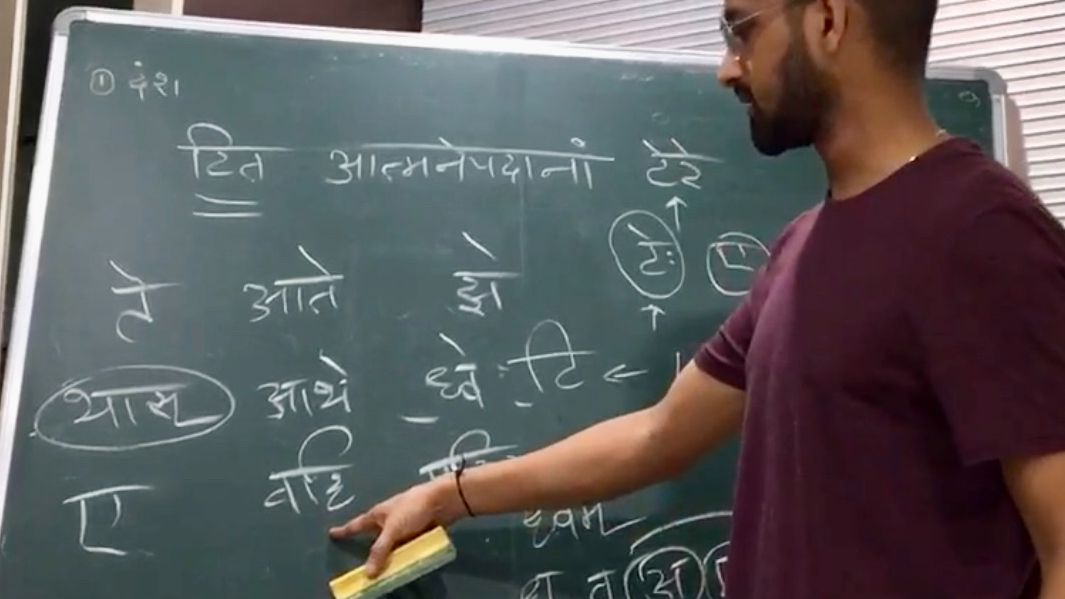 ① दंश
टित आत्मनेपदानां टेरे
टेः ए
ते आते झे
थास् आथे ध्वे टि ←
ए वहि
ध्वम्
अ